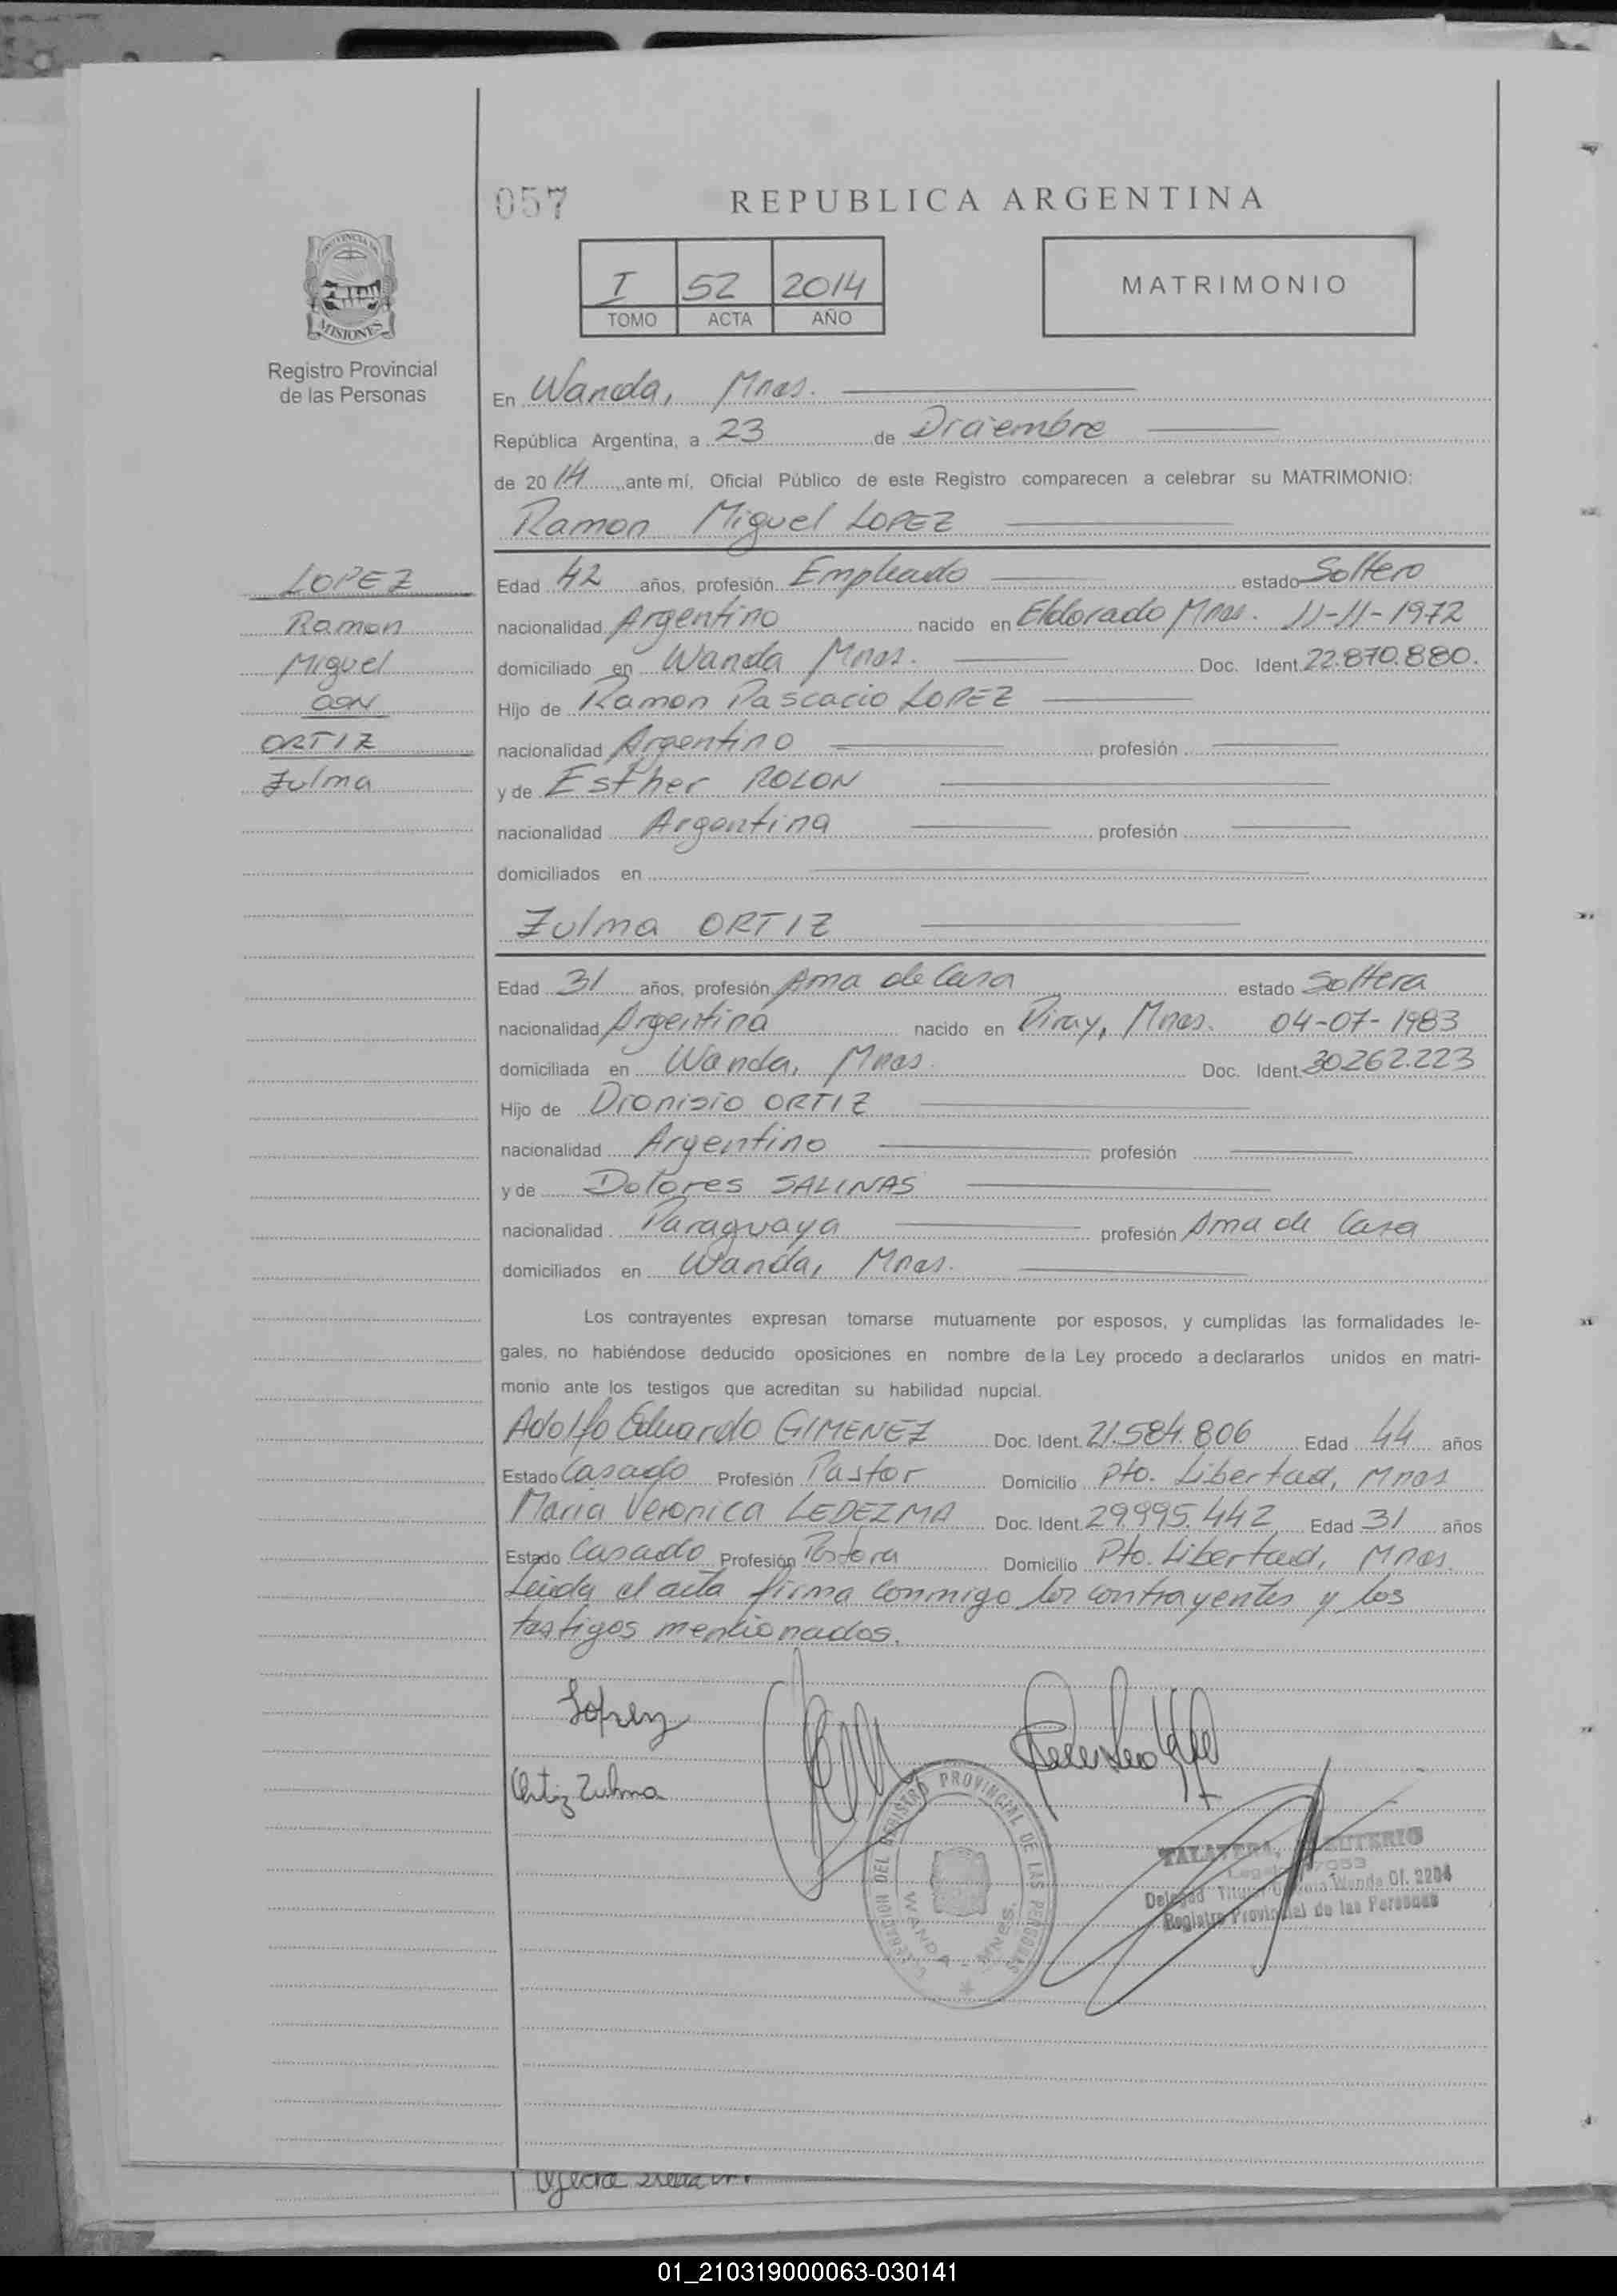 057
REPUBLICA ARGENTINA
I 52 2014
TOMO ACTA AÑO
MATRIMONIO
PROVINCIA DE
MISIONES
Registro Provincial
de las Personas
En Wanda, Mnes.
República Argentina, a 23 de Diciembre
de 2014, ante mí, Oficial Público de este Registro comparecen a celebrar su MATRIMONIO:
Ramon Miguel LOPEZ
LOPEZ
Ramon
Miguel
CON
ORTIZ
Zulma
Edad 42 años, profesión Empleado estado Soltero
nacionalidad Argentino nacido en Eldorado Mnes. 11-11-1972
domiciliado en Wanda Mnes. Doc. Ident. 22.870.880.
Hijo de Ramon Pascacio LOPEZ
nacionalidad Argentino profesión
y de Esther ROLON
nacionalidad Argentina profesión
domiciliados en
Zulma ORTIZ
Edad 31 años, profesión Ama de Casa estado Soltera
nacionalidad Argentina nacido en Piray, Mnes. 04-07-1983
domiciliada en Wanda, Mnes. Doc. Ident. 30262.223
Hijo de Dionisio ORTIZ
nacionalidad Argentino profesión
y de Dolores SALINAS
nacionalidad Paraguaya profesión Ama de Casa
domiciliados en Wanda, Mnes.
Los contrayentes expresan tomarse mutuamente por esposos, y cumplidas las formalidades le-
gales, no habiéndose deducido oposiciones en nombre de la Ley procedo a declararlos unidos en matri-
monio ante los testigos que acreditan su habilidad nupcial.
Adolfo Eduardo GIMENEZ Doc. Ident. 21.584.806 Edad 44 años
Estado Casado Profesión Pastor Domicilio Pto. Libertad, Mnes
Maria Veronica LEDEZMA Doc. Ident. 29.995.442 Edad 31 años
Estado Casado Profesión Pastora Domicilio Pto. Libertad, Mnes.
Leida el acta firma conmigo los contrayentes y los
testigos mencionados.
Lopez
Ortiz Zulma
DELEGACION DEL REGISTRO PROVINCIAL DE LAS PERSONAS
WANDA - MNES.
Wanda Of. 2204
Registro Provincial de las Personas
01_210319000063-030141